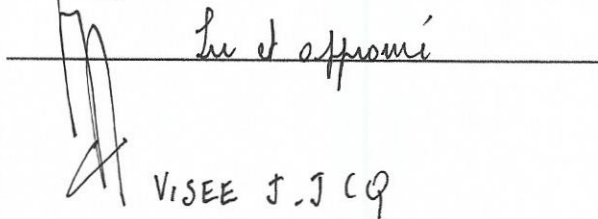 Lu et approuvé
VISEE J.J CQ